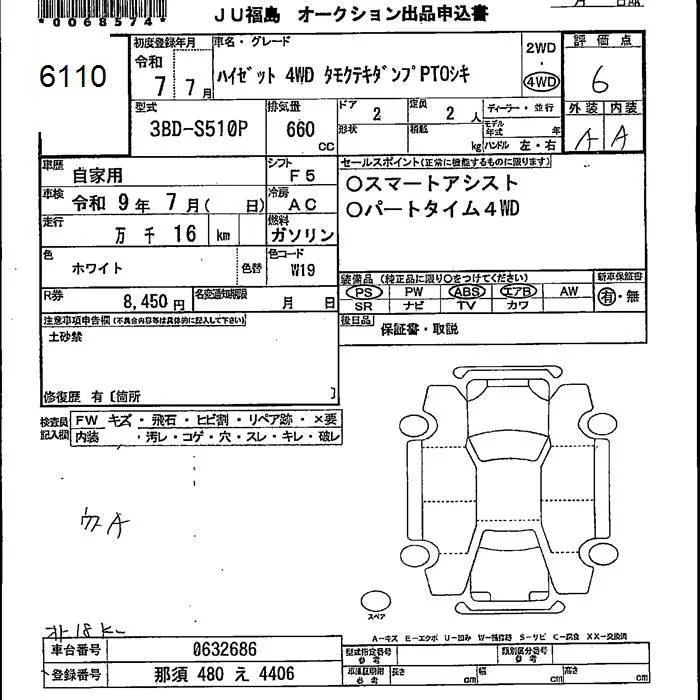 *0068574*
JU福島 オークション出品申込書
6110
初度登録年月
令和
7年 7月
車名・グレード
ハイゼット 4WD タモクテキダンプPTOシキ
2WD
・
4WD
評価点
6
型式
3BD-S510P
排気量
660
cc
ドア
2
定員
2人
ディーラー・並行
形状
積載
kg
モデル年式
年
ハンドル 左・右
外装 内装
A A
車歴
自家用
シフト
F5
セールスポイント(正常に機能するものに限ります)
○スマートアシスト
○パートタイム4WD
車検
令和 9年 7月( 日)
冷房
AC
走行
万 千 16 km
燃料
ガソリン
色
ホワイト
色替
色コード
W19
装備品 (純正品に限り○をつけてください)
新車保証書
PS PW ABS エアB AW
有・無
SR ナビ TV カワ
R券
8,450円
名変通知期限
月 日
後日品
保証書・取説
注意事項申告欄(不具合内容等は具体的に記入して下さい)
土砂禁
修復歴 有〔箇所 〕
検査員記入欄
FW キズ・飛石・ヒビ割・リペア跡・×要
内装 ・汚レ・コゲ・穴・スレ・キレ・破レ
スペア
A-キズ E-エクボ U-凹み W-補修跡 S-サビ C-腐食 XX-交換済
車台番号
0632686
型式指定番号
参考
類別区分番号
参考
登録番号
那須 480 え 4406
車庫証明用
参考
長さ
cm
幅
cm
高さ
cm